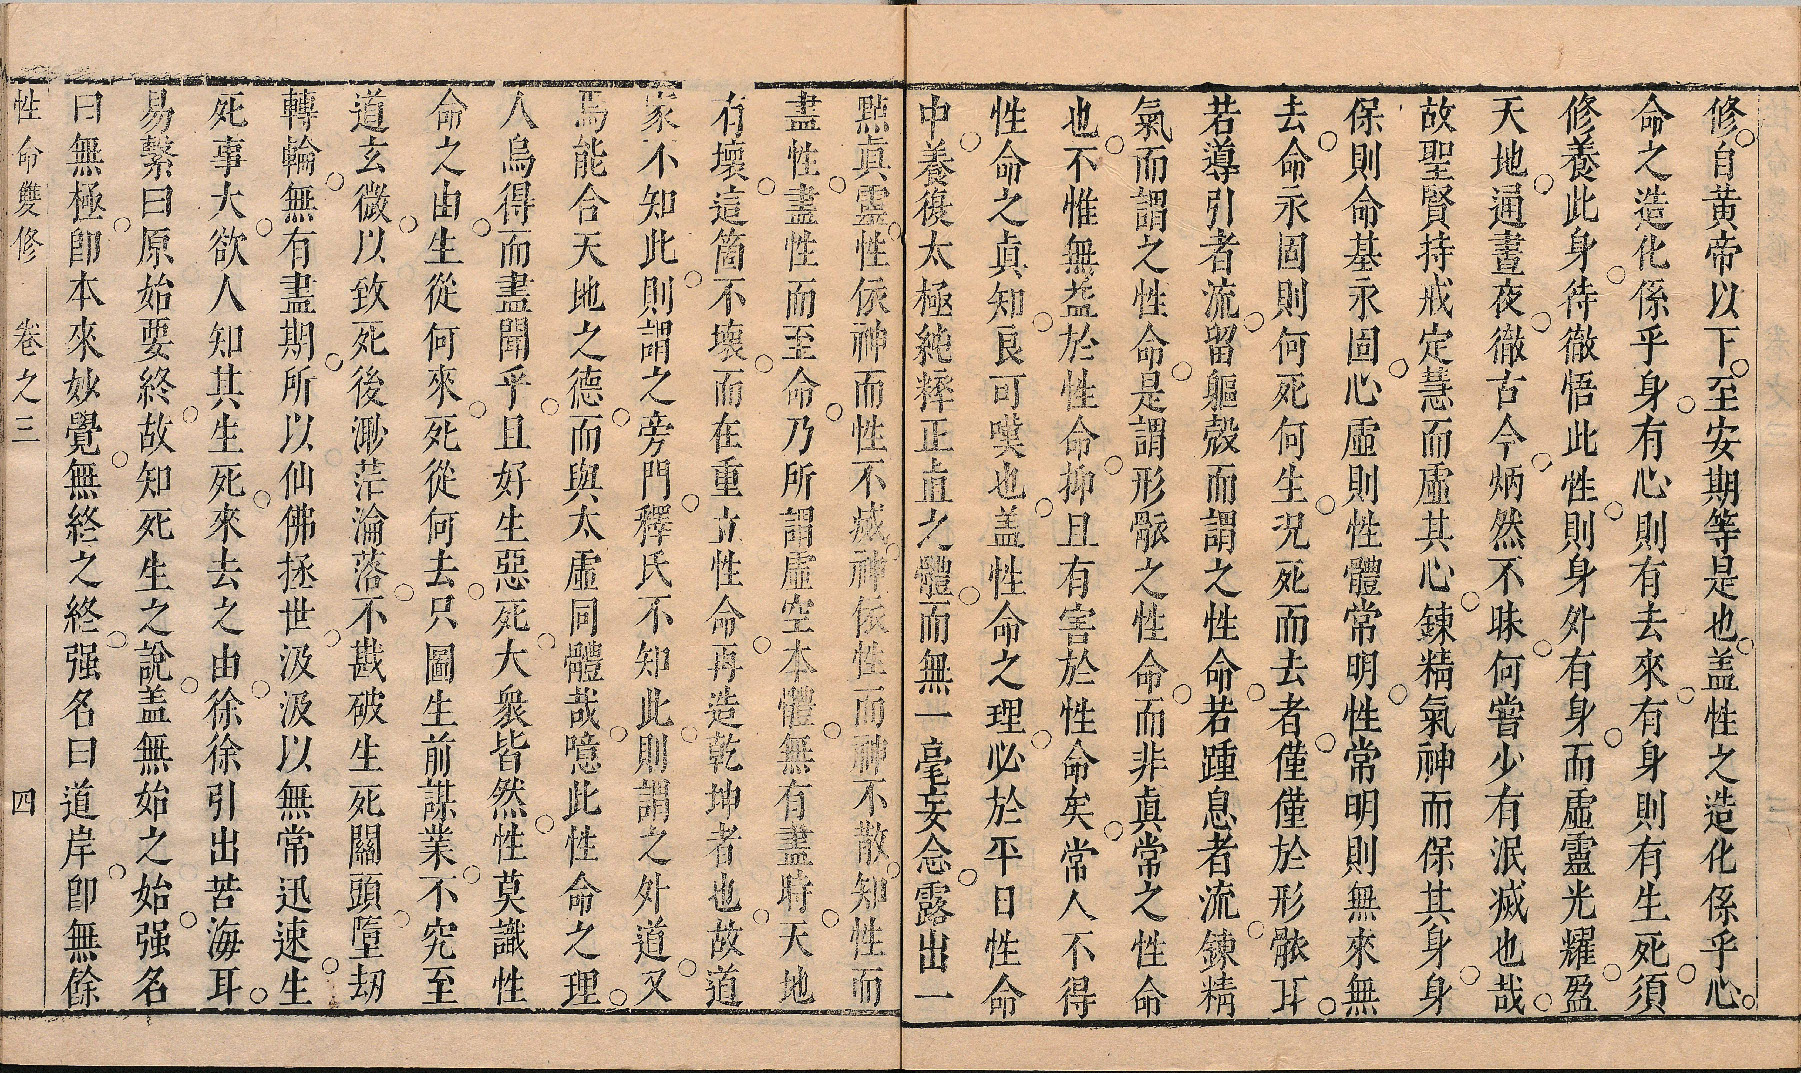 修自黃帝以下至安期等是也盖性之造化係乎心
命之造化係乎身有心則有去來有身則有生死須
修養此身待徹悟此性則身外有身而虛靈光耀盈
天地通晝夜徹古今炳然不昧何嘗少有泯滅也哉
故聖賢持戒定慧而虛其心鍊精氣神而保其身身
保則命基永固心虛則性體常明性常明則無來無
去命永固則何死何生况死而去者僅僅於形骸耳
若導引者流留軀殼而謂之性命若踵息者流鍊精
氣而謂之性命是謂形骸之性命而非眞常之性命
也不惟無益於性命抑且有害於性命矣常人不得
性命之眞知良可嘆也盖性命之理必於平日性命
中養復太極純粹正直之體而無一毫妄念露出一
點眞靈性依神而性不滅神依性而神不散知性而
盡性盡性而至命乃所謂虛空本體無有盡時天地
有壞這箇不壞而在重立性命再造乾坤者也故道
家不知此則謂之旁門釋氏不知此則謂之外道又
焉能合天地之德而與太虛同體哉噫此性命之理
人烏得而盡聞乎且好生惡死大衆皆然性莫識性
命之由生從何來死從何去只圖生前謀業不究至
道玄微以致死後渺茫淪落不戡破生死關頭墮刼
轉輪無有盡期所以仙佛拯世汲汲以無常迅速生
死事大欲人知其生死來去之由徐徐引出苦海耳
易繫曰原始要終故知死生之說盖無始之始强名
曰無極卽本來妙覺無終之終强名曰道岸卽無餘
性命雙修 卷之三 四